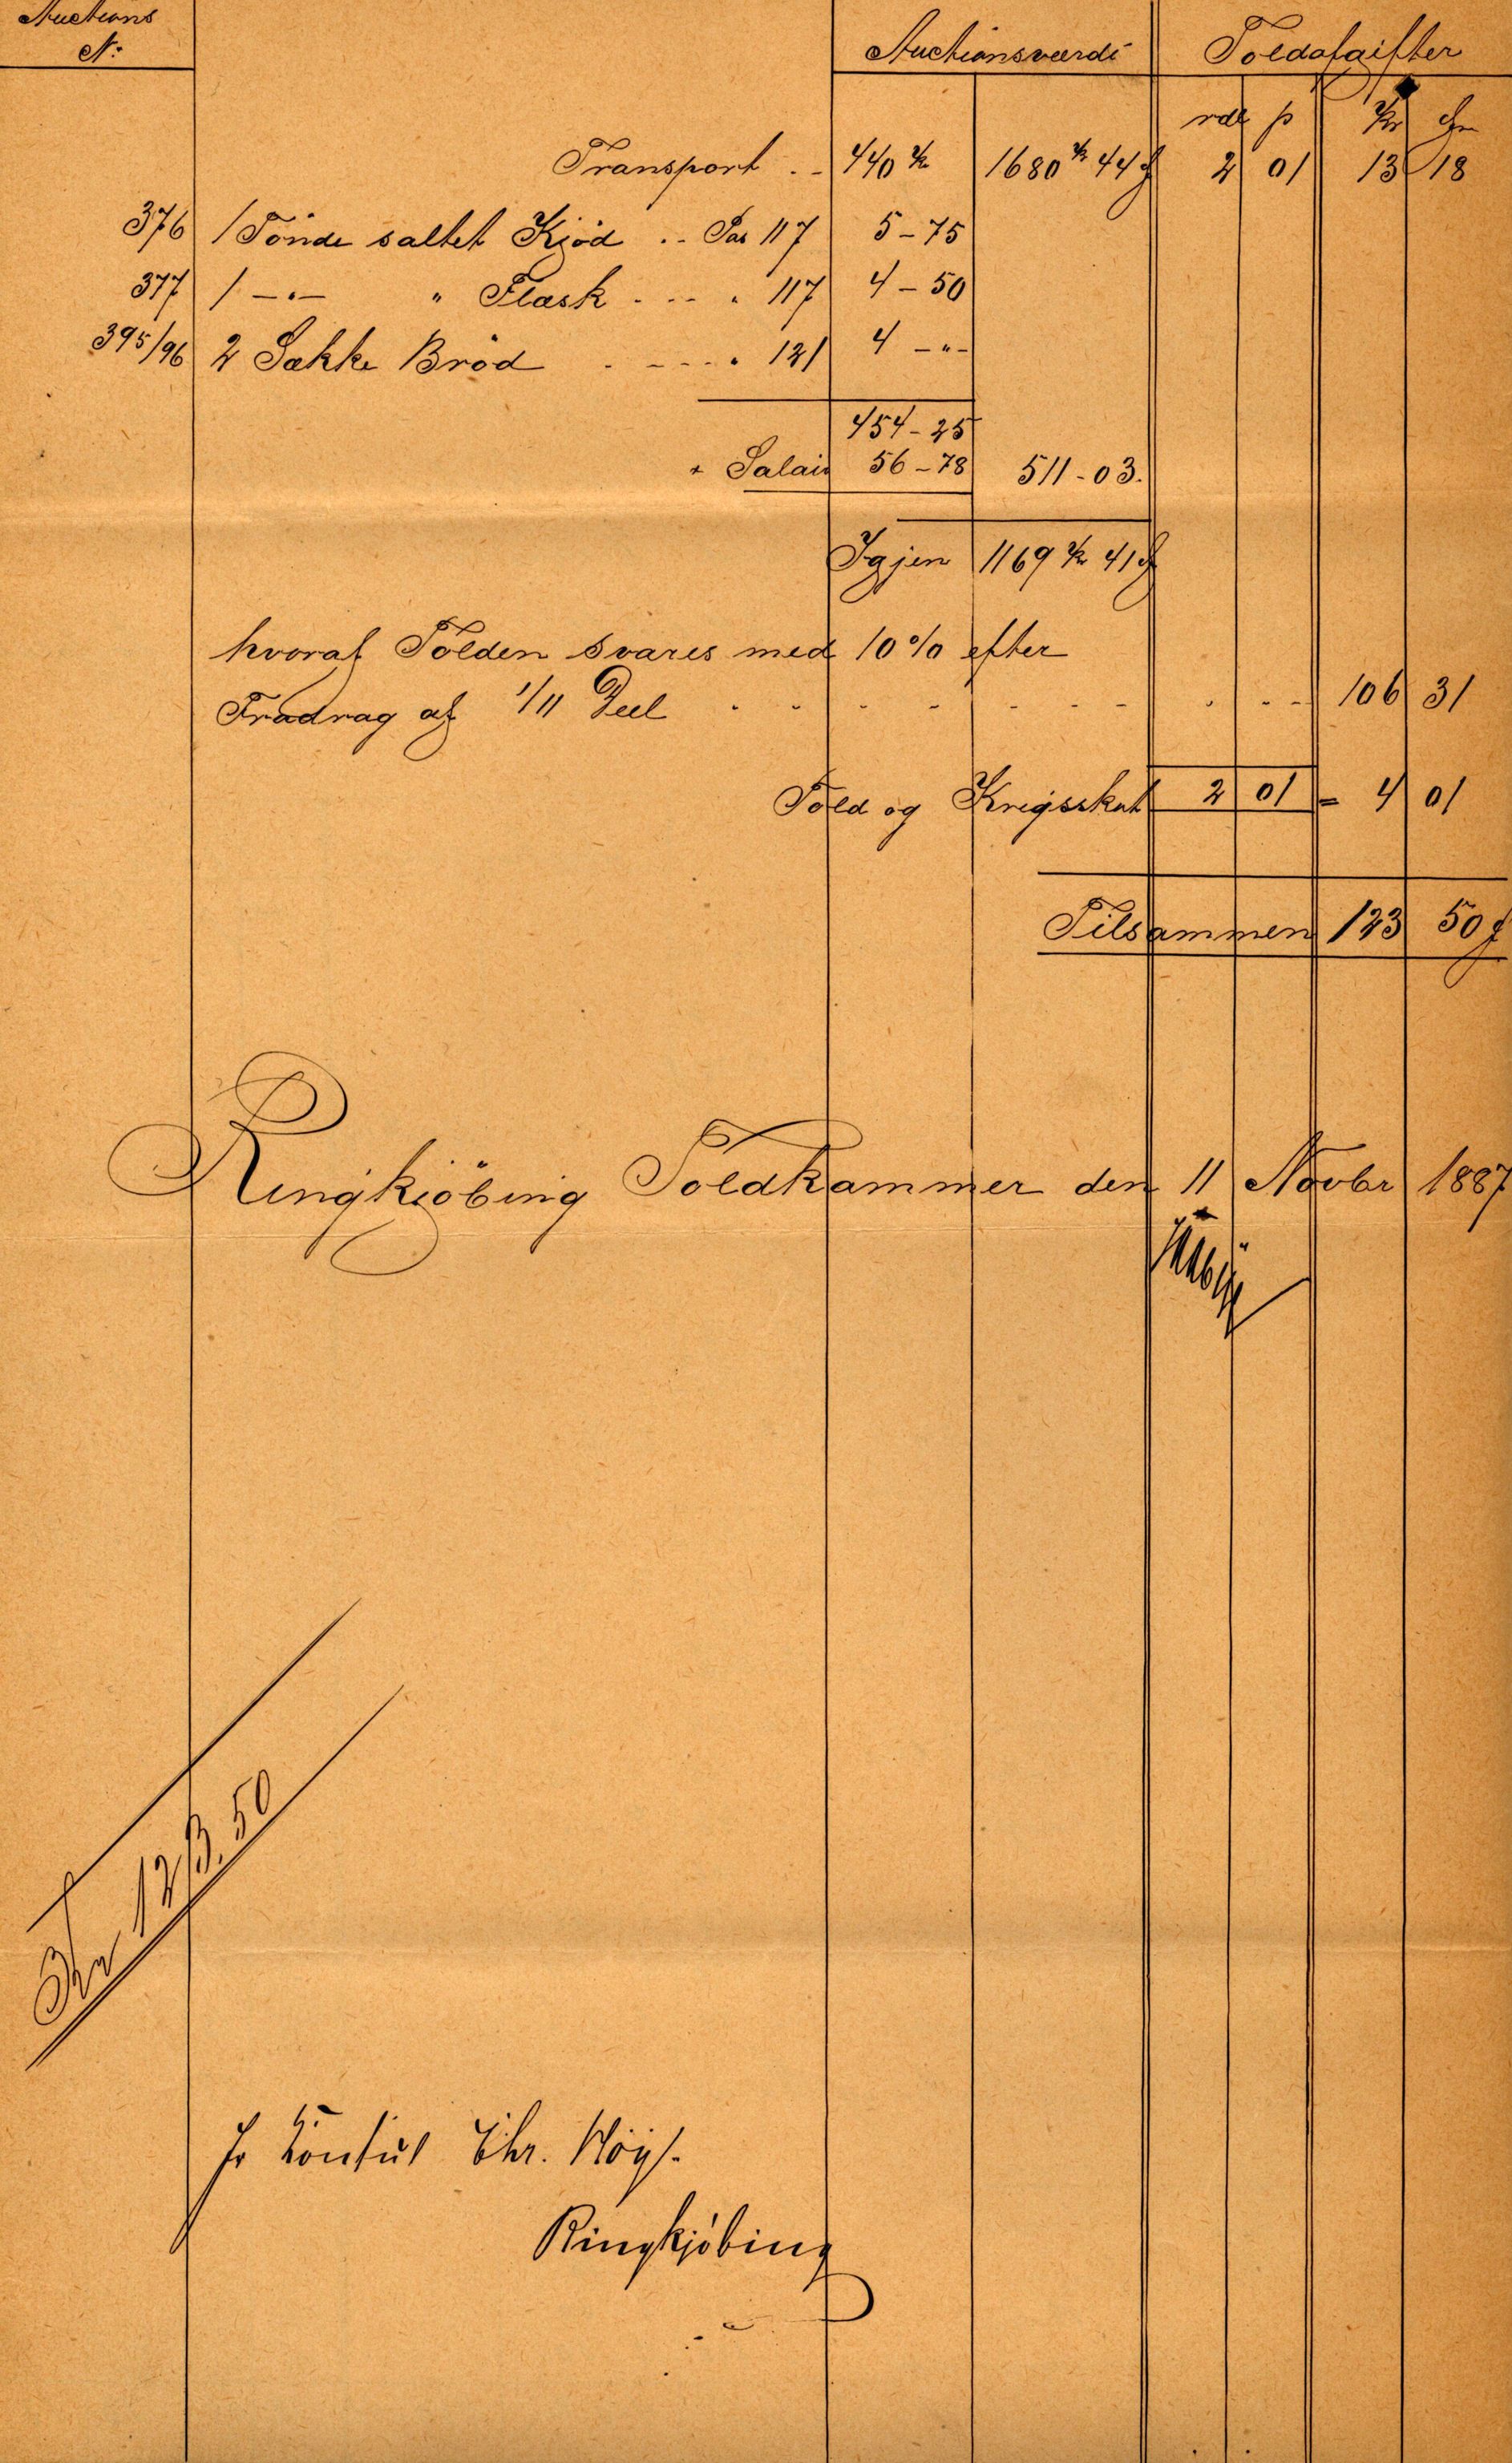 Auctions Auctionsværdi Toldafgifter
No:
rdl ſs Kr Ør
Transport .. 440 Kr 1680 Kr 44 Ø 2 01 13 18
376 1 Tönde saltet Kjöd .. Pas 117 5-75
377 1 -"- " Flæsk ... " 117 4-50
395/96 2 Sække Bröd ..... " 121 4 -"-
454-25
+ Salair 56-78 511-03.
Igjen 1169 Kr 41 Ø
hvoraf Tolden svares med 10% efter
Fradrag af 1/11 Deel 106 31
Told og Krigsskat 2 01 = 4 01
Tilsammen 123 50 Ø
Ringkjöbing Toldkammer den 11 Novbr 1887
Kr 123.50
Hr Consul Chr. Höy.
Ringkjöbing